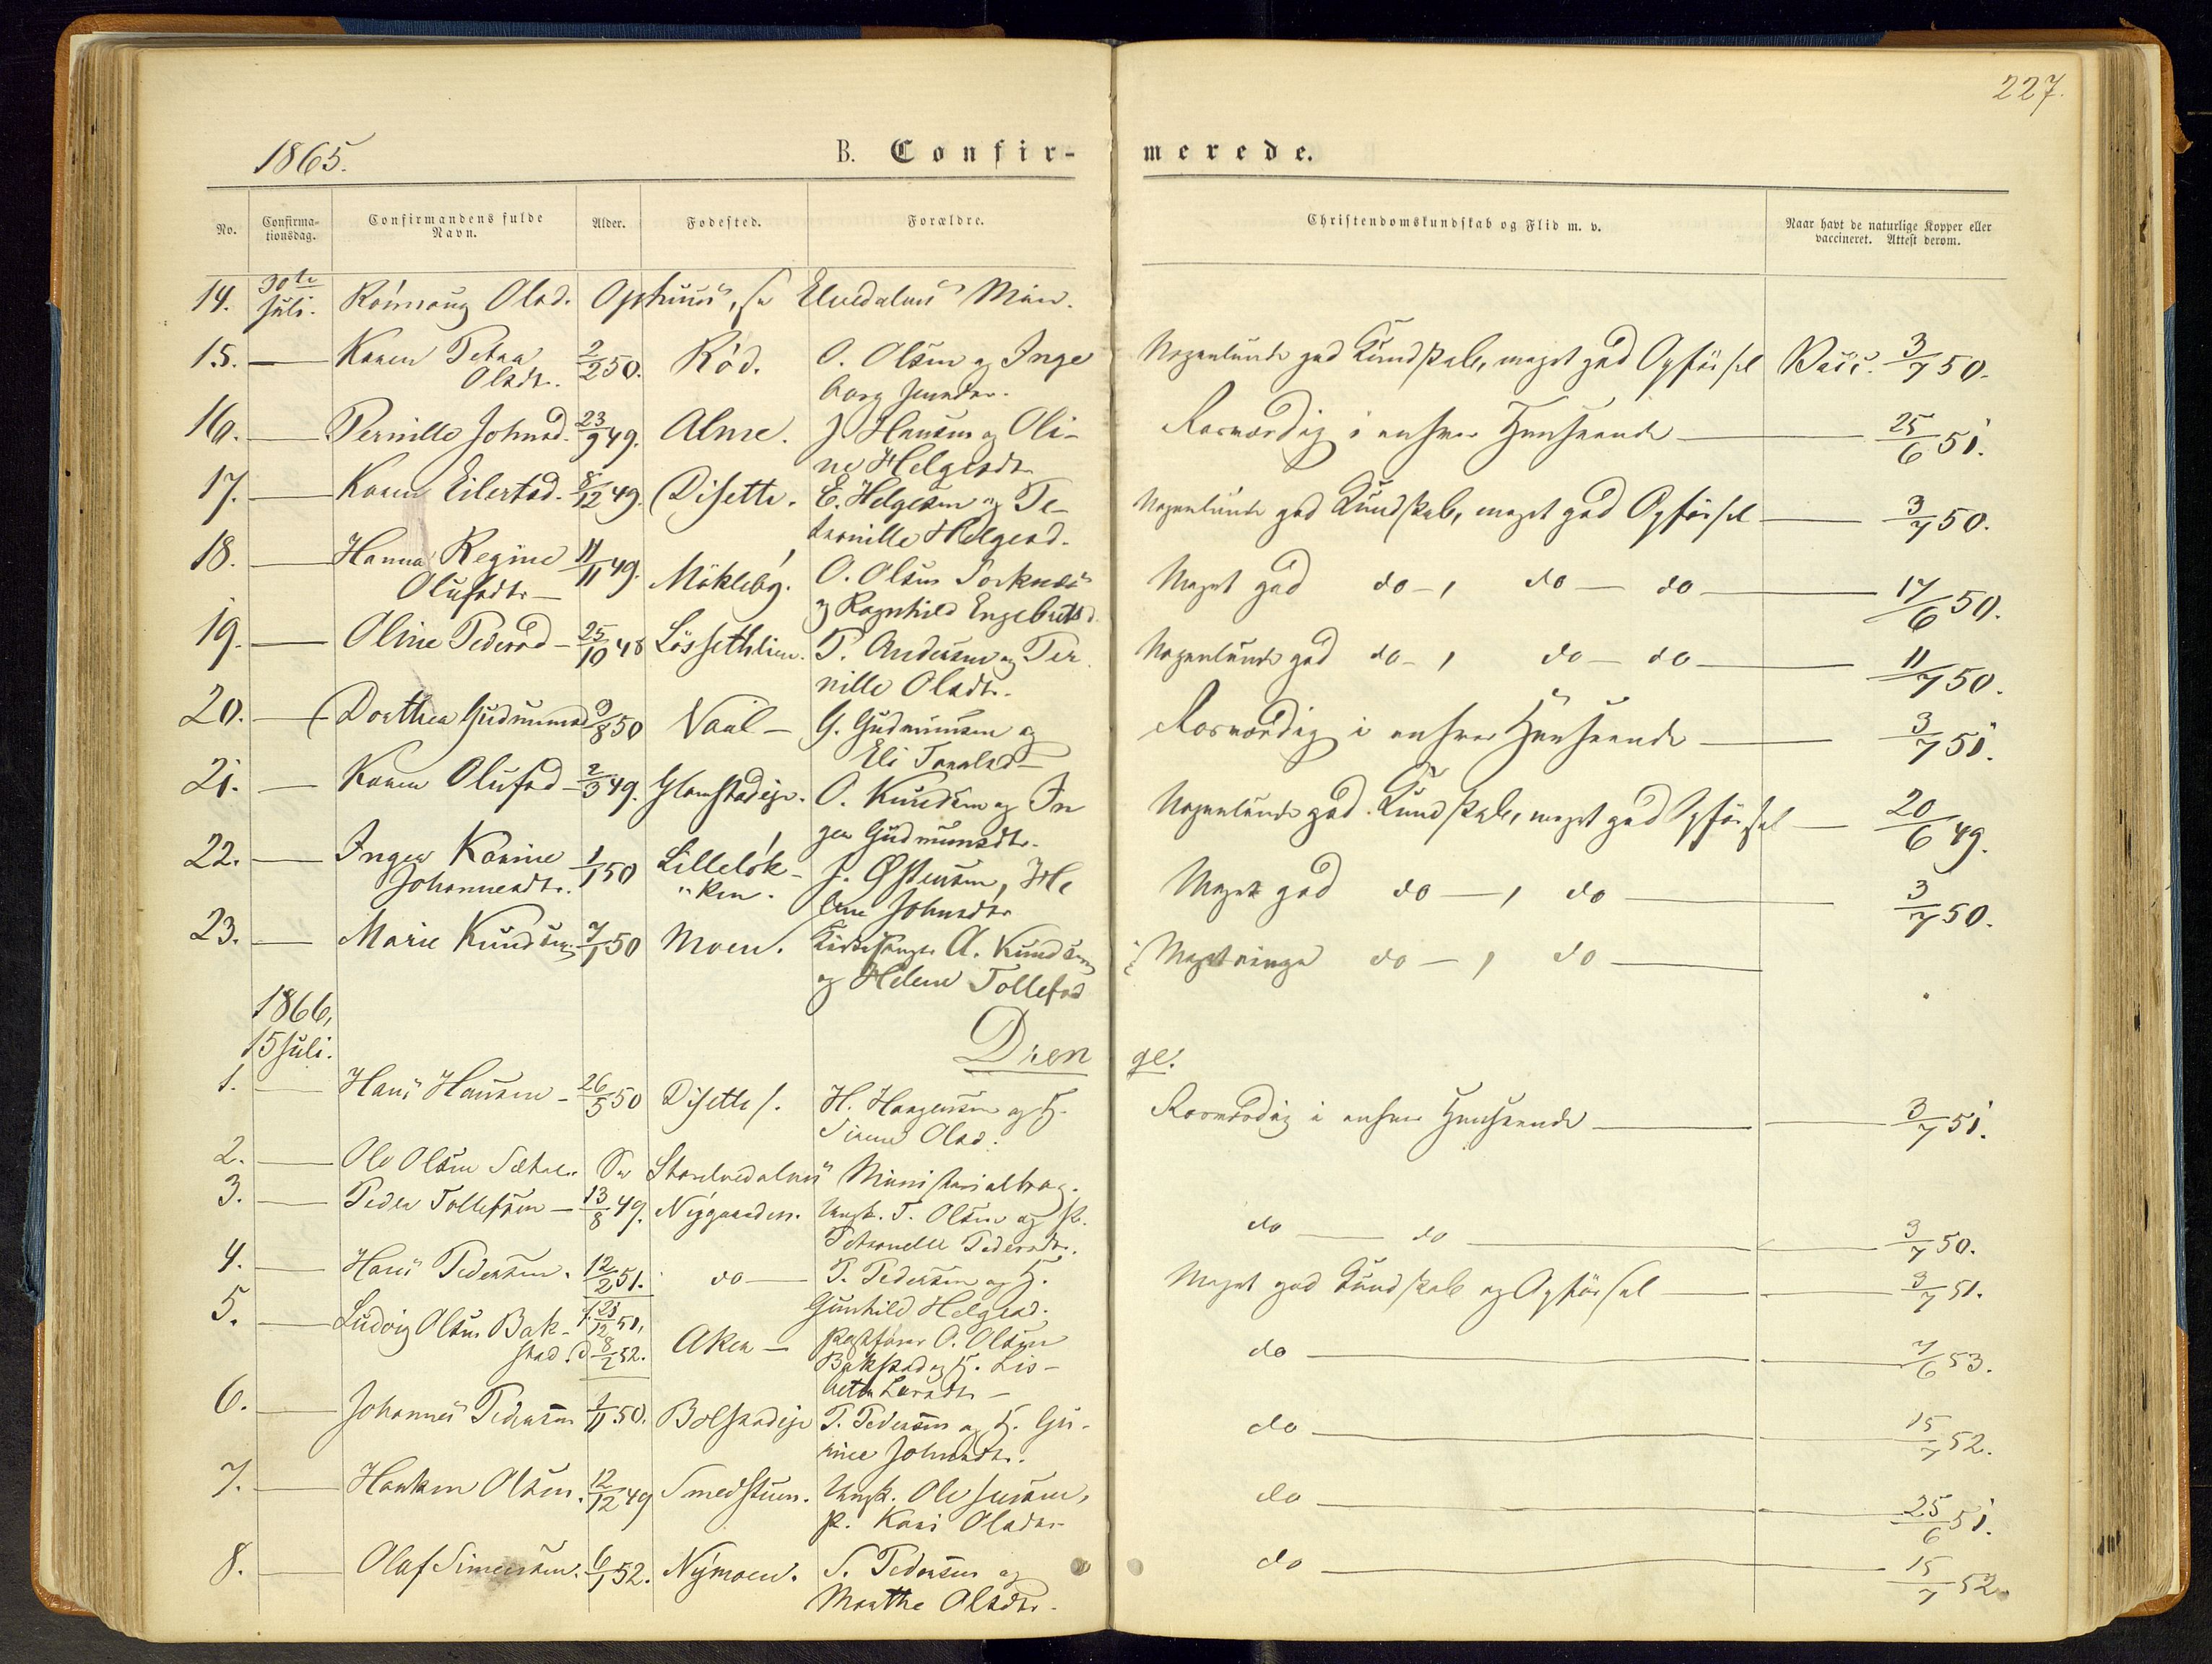 227.
1865.
B. Confir-
merede.
No. Confirma-tionsdag. Confirmandens fulde Navn. Alder. Fødested. Forældre. Christendomskundskab og Flid m. v. Naar havt de naturlige Kopper eller vaccineret. Attest derom.
14. 30te Juli. Rönnoug Olsd. Ophuus, se Elvedalens Min.
15. — Karen Petra 2/2 50. Röd. O. Olsen og Inge Nogenlunde god Kundskab, meget god Opførsel Vacc. 3/7 50.
Olsdt. borg Jensdtr.
16. — Pernille Johnsd. 23/9 49. Alme. J. Hansen og Oli- Rosværdig i enhver Henseende — 25/6 51.
ne Helgesdt.
17. — Karen Eilertsd. 8/12 49. Disette. E. Helgesen og Pe- Nogenlunde god Kundskab, meget god Opførsel — 3/7 50.
tronille Helgesd.
18. — Hanna Regine 11/11 49. Mökleby. O. Olsen Sorknæs Meget god do —, do — do — 17/6 50.
Olufsdtr — og Ragnhild Engebretsd.
19. — Oline Pedersd — 25/10 48 Lössethlien. P. Andersen og Per Nogenlunde god do —, do — do — 11/7 50.
nille Olsdtr.
20. — Dorthea Gudmunsd 9/8 50 Naal — G. Gudmunsen og Rosværdig i enhver Henseende — 3/7 51.
Eli Tomasd —
21. — Karen Olufsd — 2/3 49. Glomstadeje. O. Knudsen og In Nogenlunde god Kundskab, meget god Opførsel — 20/6 49.
ger Gudmunsdtr.
22. — Inger Karine 1/1 50 Lillelök- J. Østensen, He Meget god do —, do — 3/7 50.
Johannesdtr. "ken. lene Johnsdtr
23. — Marie Knudsen 7/1 50 Moen. Kirkesanger A. Knudsen Meget ringe do —, do —
og Helene Tollefsd
1866,
15 Juli. Dren ge.
1. — Hans Hansen — 26/5 50 Disette /. H. Haagensen og H. Rosværdig i enhver Henseende — 3/7 51.
Sirene Olsd.
2. — Ole Olsen Sætre. Se Storelvedalens Ministerialbog.
3. — Peder Tollefsen — 13/8 49. Nygaarden. Ungk. T. Olsen og P. do — do — 3/7 50.
Petronelle Pedersdtr.
4. — Hans Pedersen. 12/2 51. do — P. Pedersen og H. Meget god Kundskab og Opførsel — 3/7 51.
Gunhild Helgesd.
5. — Ludvig Olsen Bak- f. 28/12 51, Aken — Postfører O. Olsen do — 7/6 53.
stad. d. 8/2 52. Bakstad og H. Lis-
beth Larsdtr —
6. — Johannes Pedersen 1/11 50. Bolstadeje P. Pedersen og H. Gu- do — 15/7 52.
nine Johnsdtr.
7. — Haakon Olsen. 12/12 49 Smedstuen. Ungk. Ole Jensen, do — 25/6 51.
P. Kari Olsdtr
8. — Olaf Simensen. 6/1 52. Nymoen. S. Pedersen og do — 15/7 52.
Marthe Olsdtr.